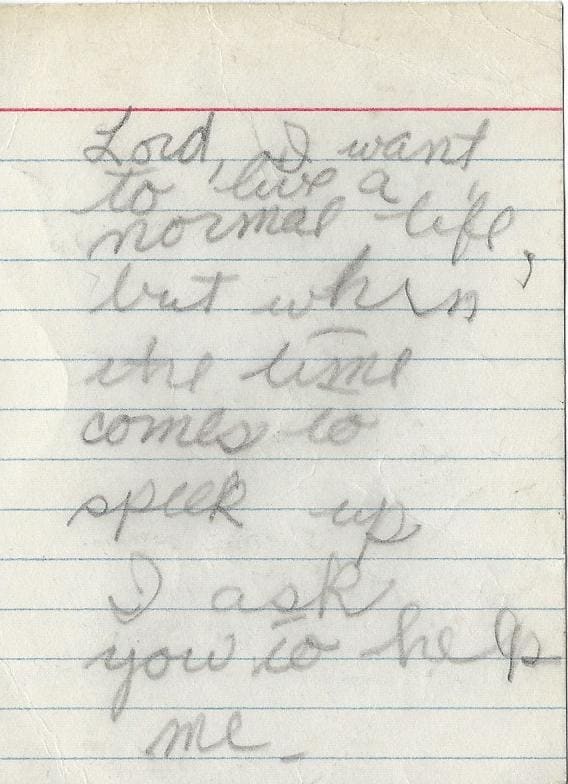 Lord, I want
to live a
normal life,
but when
the time
comes to
speek up
I ask
you to help
me